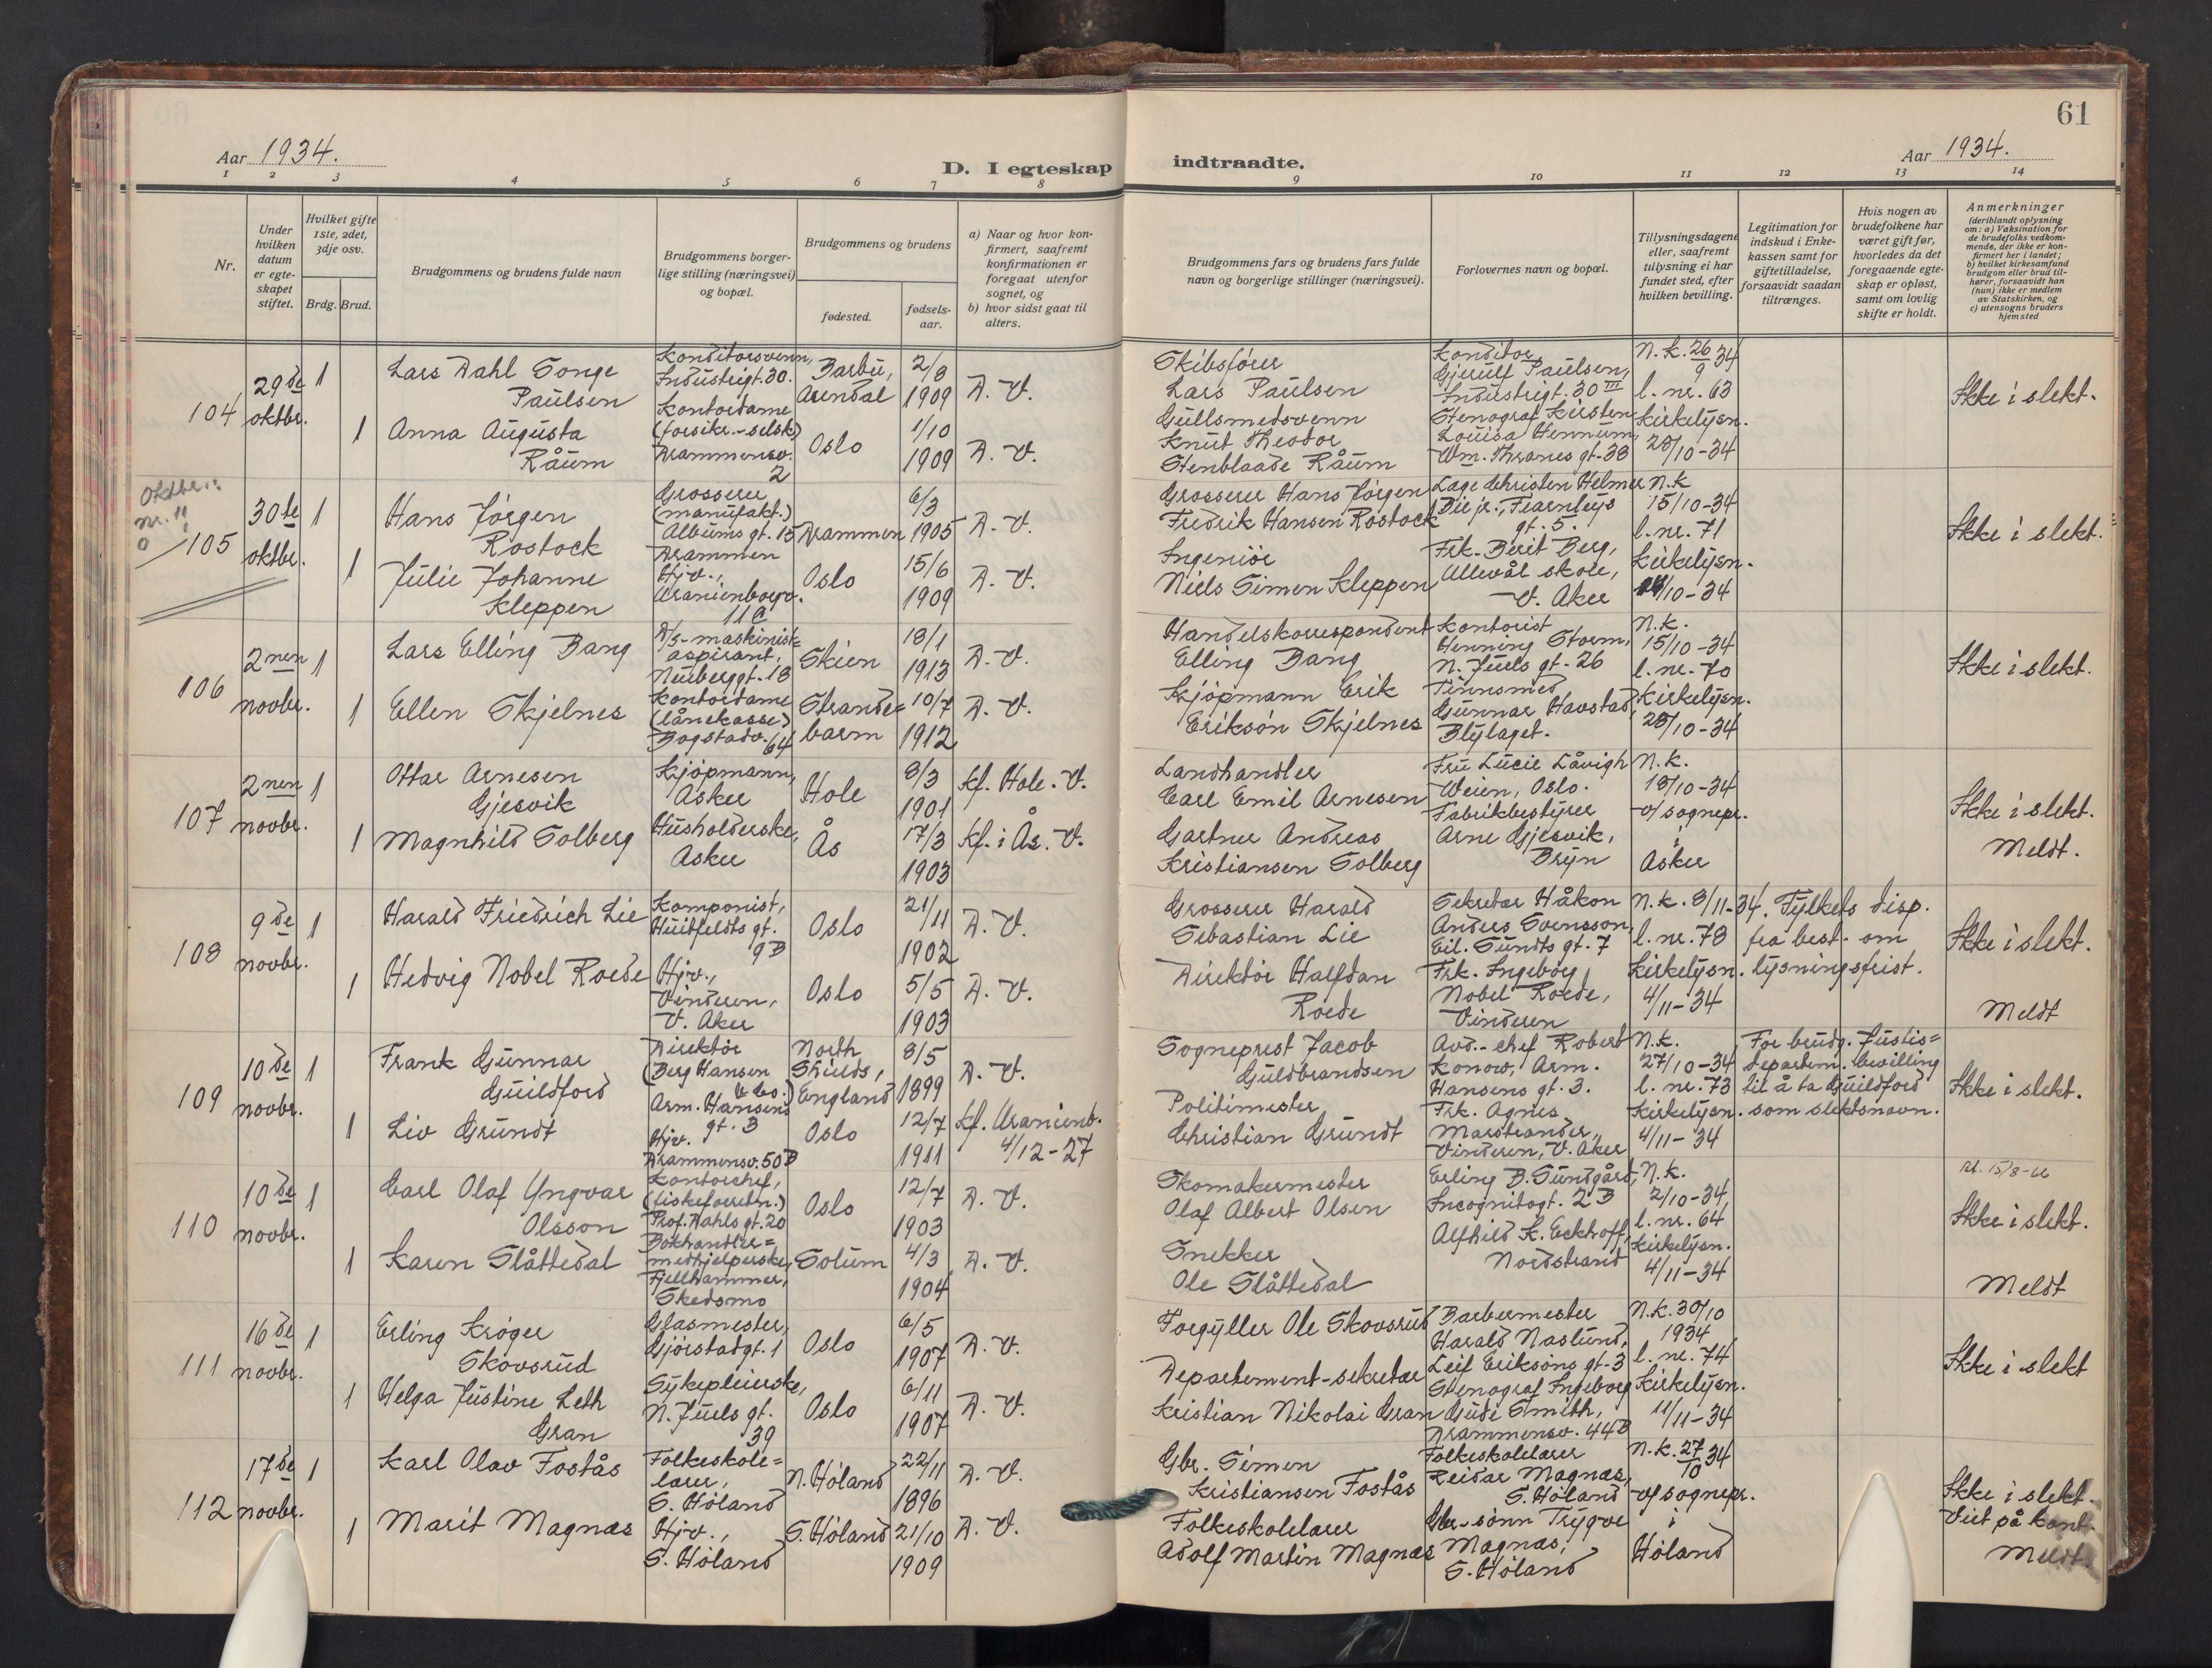 61
Aar 1934.
D. I egteskap indtraadte.
Aar 1934.
1 2 3 4 5 6 7 8 9 10 11 12 13 14
Nr.
Under
hvilken
datum
er egte-
skapet
stiftet.
Hvilket gifte
1ste, 2det,
3dje osv.
Brdg. Brud.
Brudgommens og brudens fulde navn
Brudgommens borger-
lige stilling (næringsvei)
og bopæl.
Brudgommens og brudens
fødested.
fødsels-
aar.
a) Naar og hvor kon-
firmert, saafremt
konfirmationen er
foregaat utenfor
sognet, og
b) hvor sidst gaat til
alters.
Brudgommens fars og brudens fars fulde
navn og borgerlige stillinger (næringsvei).
Forlovernes navn og bopæl.
Tillysningsdagene
eller, saafremt
tillysning ei har
fundet sted, efter
hvilken bevilling.
Legitimation for
indskud i Enke-
kassen samt for
giftetilladelse,
forsaavidt saadan
tiltrænges.
Hvis nogen av
brudefolkene har
været gift før,
hvorledes da det
foregaaende egte-
skap er opløst,
samt om lovlig
skifte er holdt.
Anmerkninger
(deriblandt oplysning
om: a) Vaksination for
de brudefolks vedkom-
mende, der ikke er kon-
firmert her i landet;
b) hvilket kirkesamfund
brudgom eller brud til-
hører, forsaavidt han
(hun) ikke er medlem
av Statskirken, og
c) utensogns bruders
hjemsted
104
29de
oktbr.
1
Lars Dahl Songe
Paulsen
Konditorsvenn,
Industrigt. 30.
Barbu,
Arendal
2/8
1909
D. V.
1
Anna Augusta
Råum
Kontordame
(forsikr.-selsk)
Drammensv.
2
Oslo
1/10
1909
D. V.
Skibsfører
Lars Paulsen
Gullsmedsvenn
Knut Theodor
Stenblaade Råum
Konditor
Gjerulf Paulsen,
Industrigt. 30 III
Stenograf Kirsten
Louisa Hennum,
Wm. Thranes gt. 38
N.k. 26/9 34
l. nr. 63
Kirkelysn.
28/10-34
Ikke i slekt.
Oktbr.:
nr. 11
0
105
30te
oktbr.
1
Hans Jørgen
Rostock
Grosserer
(manufakt.)
Albums gt. 15
Drammen
Drammen
6/3
1905
D. V.
1
Julie Johanne
Kleppen
Hjv.,
Uranienborgv.
11 a
Oslo
15/6
1909
D. V.
Grosserer Hans Jørgen
Fredrik Hansen Rostock
Ingeniør
Niels Simen Kleppen
Lage Christen Helmer
Bie jr., Fearnleys
gt. 5.
Frk. Berit Berg,
Ullevål skole,
V. Aker
N.k
15/10-34
l. nr. 71
Kirkelysn.
/10-34
Ikke i slekt.
106
2nen
novbr.
1
Lars Elling Bang
D/s-maskinist=
aspirant,
Neuberggt. 18
Skien
18/1
1913
D. V.
1
Ellen Skjelnes
Kontordame
(lånekasse)
Bogstadv. 64
Strande=
barm
10/7
1912
D. V.
Handelskorrespondent
Elling Bang
Kjøpmann Erik
Eriksøn Skjelnes
Kontorist
Henning Storm,
N. Juels gt. 26
Tinnsmed
Gunnar Havstad,
Blylaget.
N.k.
15/10-34
l. nr. 70
Kirkelysn.
28/10-34
Ikke i slekt.
107
2nen
novbr.
1
Ottar Arnesen
Gjesvik
Kjøpmann,
Asker
Hole
8/3
1901
Kf. Hole. V.
1
Magnhild Solberg
Husholderske,
Asker
Ås
17/3
1903
Kf. i Ås. V.
Landhandler
Carl Emil Arnesen
Gartner Andreas
Kristiansen Solberg
Fru Lucie Låvigh
Weien, Oslo.
Fabrikbestyrer
Arne Gjesvik,
Bryn
N.k.
18/10-34
v/ sognepr.
i
Asker
Ikke i slekt.
Meldt.
108
9de
novbr.
1
Harald Friedrich Lie
Komponist,
Huitfeldts gt.
9B
Oslo
21/11
1902
D. V.
1
Hedvig Nobel Roede
Hjv.,
Vinderen,
V. Aker
Oslo
5/5
1903
D. V.
Grosserer Harald
Sebastian Lie
Direktør Halfdan
Roede
Sekretær Håkon
Anders Svensson,
Eil. Sundts gt. 7
Frk. Ingeborg
Nobel Roede,
Vinderen
N.k. 8/11-34.
l. nr. 78
Kirkelysn.
4/11-34
Fylkets disp.
fra best. om
lysningsfrist.
Ikke i slekt.
Meldt
109
10de
novbr.
1
Frank Gunnar
Guildford
Direktør
(Berg Hansen
& Co.)
Arm. Hansens
gt. 3
North
Shields,
England
8/5
1899
D. V.
1
Liv Grundt
Hjv.
Drammensv. 50B
Oslo
12/7
1911
Kf. Uranienb.
4/12-27
Sogneprest Jacob
Guldbrandsen
Politimester
Christian Grundt
Avd.-chef Robert
Konow, Arm.
Hansens gt. 3.
Frk. Agnes
Marstrander,
Vinderen, V. Aker
N.k.
27/10-34
l. nr. 73
Kirkelysn.
4/11-34
For brudg. Justis=
departem. bevilling
til å ta Guildford
som slektsnavn.
Ikke i slekt.
110
10de
novbr.
1
Carl Olaf Yngvar
Olsson
Kontorchef,
(fiskeforretn.)
Prof. Dahls gt. 20
Oslo
12/7
1903
D. V.
1
Karen Slåttedal
Bokhandler=
medhjelperske,
Fjellhammer,
Skedsmo
Solum
4/3
1904
D. V.
Skomakermester
Olaf Albert Olsen
Snekker
Ole Slåttedal
Erling B. Sundgård,
Incognitogt. 2B
Alfhild K. Eckhoff,
Nordstrand
N.k.
2/10-34
l. nr. 64
Kirkelysn.
4/11-34
15/8-
Ikke i slekt.
Meldt
111
16de
novbr.
1
Erling Krøger
Skovsrud
Glasmester,
Gjørstadgt. 1
Oslo
6/5
1907
D. V.
1
Helga Justine Leth
Gran
Sykepleierske,
N. Juels gt.
39
Oslo
6/11
1907
D. V.
Forgyller Ole Skovsrud
Departement-sekretær
Kristian Nikolai Gran
Barbermester
Harald Naslund,
Leif Eriksøns gt. 3
Stenograf Ingeborg
Gude Smith,
Drammensv. 44B
N.k. 30/10
1934
l. nr. 74
Kirkelysn.
11/11-34
Ikke i slekt
112
17de
novbr.
1
Karl Olav Fostås
Folkeskole=
lærer,
S. Høland
N. Høland
22/11
1896
D. V.
1
Marit Magnæs
Hjv.,
S. Høland
S. Høland
21/10
1909
D. V.
Gbr. Simen
Kristiansen Fostås
Folkeskolelærer
Adolf Martin Magnæs
Folkeskolelærer
Reidar Magnæs,
S. Høland
Gbr-sønn Trygve
Magnæs,
S. Høland
N.k. 27/10 34
v/ sognepr.
i
Høland
Ikke i slekt.
Viet på kont.
Meldt.